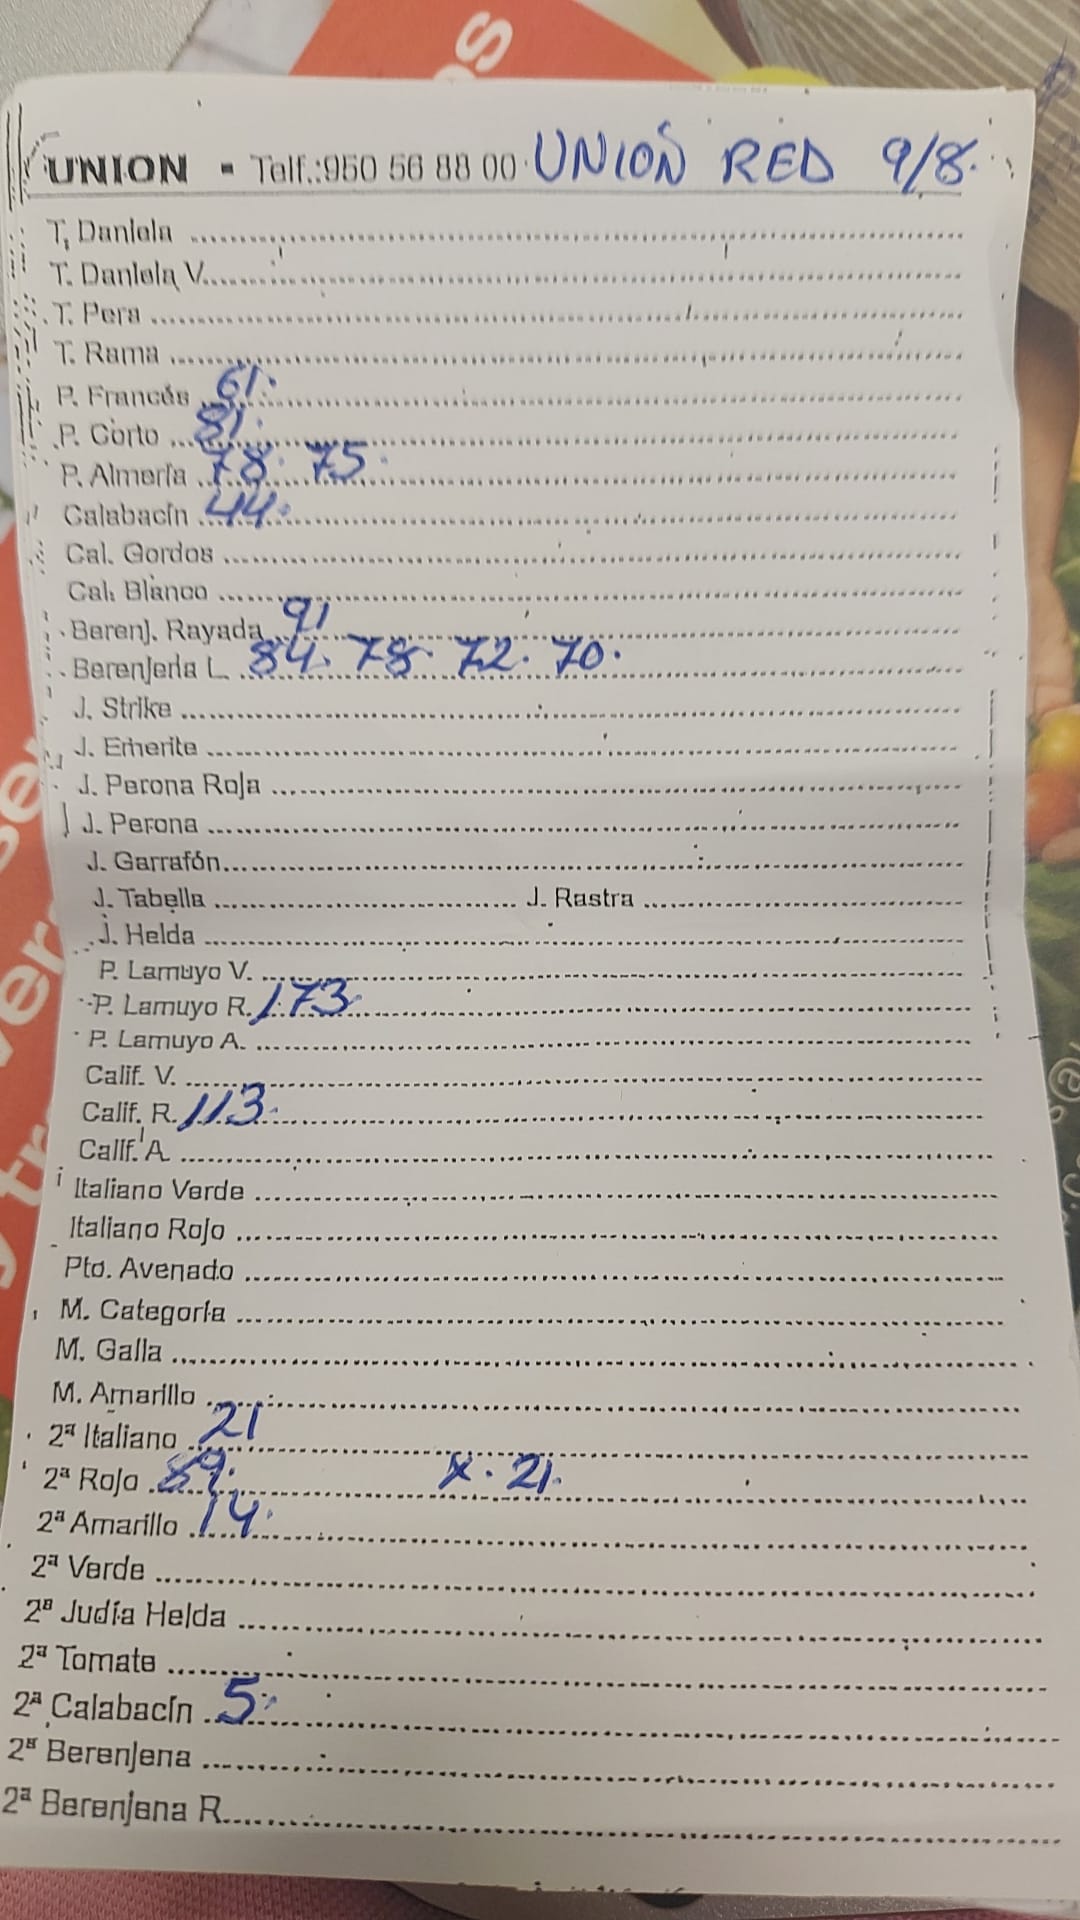 UNION - Telf.:950 56 88 00 UNIÓN RED 9/8.
T. Daniela
T. Daniela V.
T. Pera
T. Rama
P. Francés 61.
P. Corto 81.
P. Almería 78. 75.
Calabacín 44.
Cal. Gordos
Cal. Blanco
Berenj. Rayada 91
Berenjena L. 84. 78. 72. 70.
J. Strike
J. Emerite
J. Perona Roja
J. Perona
J. Garrafón
J. Tabella J. Rastra
J. Helda
P. Lamuyo V.
P. Lamuyo R. 173.
P. Lamuyo A.
Calif. V.
Calif. R. 113.
Calif. A
Italiano Verde
Italiano Rojo
Pto. Avenado
M. Categoría
M. Galla
M. Amarillo
2ª Italiano 21
2ª Rojo 89. x. 21.
2ª Amarillo 14.
2ª Verde
2ª Judía Helda
2ª Tomate
2ª Calabacín 5.
2ª Berenjena
2ª Berenjena R.